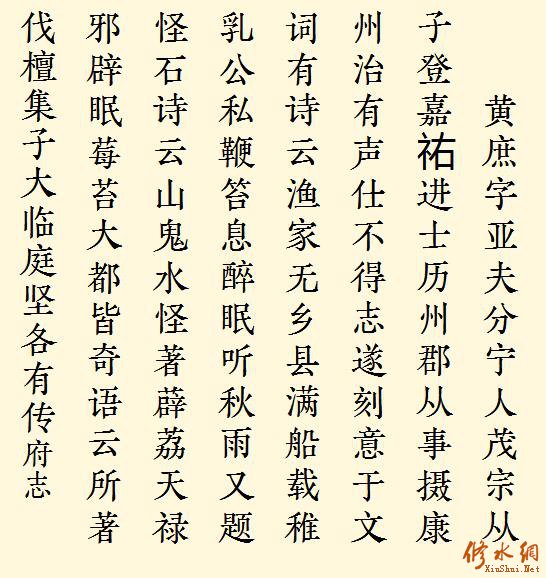 黄庶字亚夫分宁人茂宗从
子登嘉祐进士历州郡从事摄康
州治有声仕不得志遂刻意于文
词有诗云渔家无乡县满船载稚
乳公私鞭笞息醉眠听秋雨又题
怪石诗云山鬼水怪著薜荔天禄
邪辟眠莓苔大都皆奇语云所著
伐檀集子大临庭坚各有传府志
修水網
XiuShui.Net